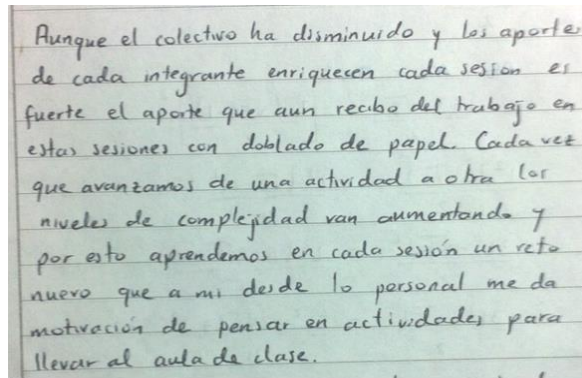 Aunque el colectivo ha disminuido y los aportes
de cada integrante enriquecen cada sesion es
fuerte el aporte que aun recibo del trabajo en
estas sesiones con doblado de papel. Cada vez
que avanzamos de una actividad a otra los
niveles de complejidad van aumentando y
por esto aprendemos en cada sesión un reto
nuevo que a mi desde lo personal me da
motivación de pensar en actividades para
llevar al aula de clase.